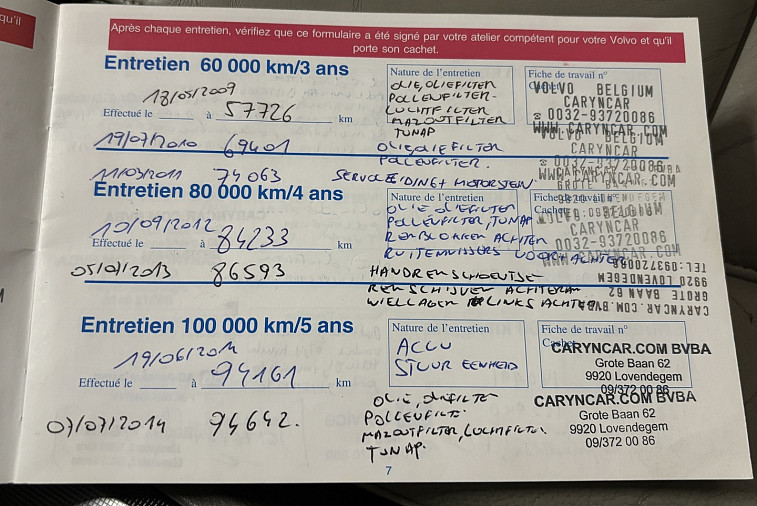 qu'il
Après chaque entretien, vérifiez que ce formulaire a été signé par votre atelier compétent pour votre Volvo et qu'il
porte son cachet.
Entretien 60 000 km/3 ans
Nature de l'entretien
Fiche de travail n°
18/05/2009
Effectué le à 57726 km
OLIE, OLIEFILTER
POLLENFILTER
LUCHTFILTER
MAZOUTFILTER
TUNAP
VOLVO BELGIUM
CARYNCAR
0032-93720086
WWW.CARYNCAR.COM
19/07/2010 69401
OLIE, OLIEFILTER
POLLENFILTER.
VOLVO BELGIUM
CARYNCAR
0032-93720086
WWW.CARYNCAR.COM
11/03/2011 74063
Entretien 80 000 km/4 ans
Fiche de travail n°
Cachet
10/09/2012
Effectué le à 84233 km
OLIE OLIEFILTER
POLLENFILTER, TUNAP
REMBLOKKEN ACHTER
RUITENWISSERS VOOR + ACHTER
CARYNCAR
0032-93720086
86593
REMSCHIJVEN ACHTERAAN
WIELLAGER LINKS ACHTER
TEL:093720086
9920 LOVENDEGEM
GROTE BAAN 62
CARYNCAR.COM.BVBA
Entretien 100 000 km/5 ans
Nature de l'entretien
Fiche de travail n°
Cachet
19/06/2014
Effectué le à 94161 km
ACCU
STUUR EENHEID
CARYNCAR.COM BVBA
Grote Baan 62
9920 Lovendegem
09/372 00 86
07/07/2014 94642.
OLIE, OLIEFILTER
POLLENFILTE
MAZOUTFILTER, LUCHTFILTER
TUNAP.
CARYNCAR.COM BVBA
Grote Baan 62
9920 Lovendegem
09/372 00 86
7